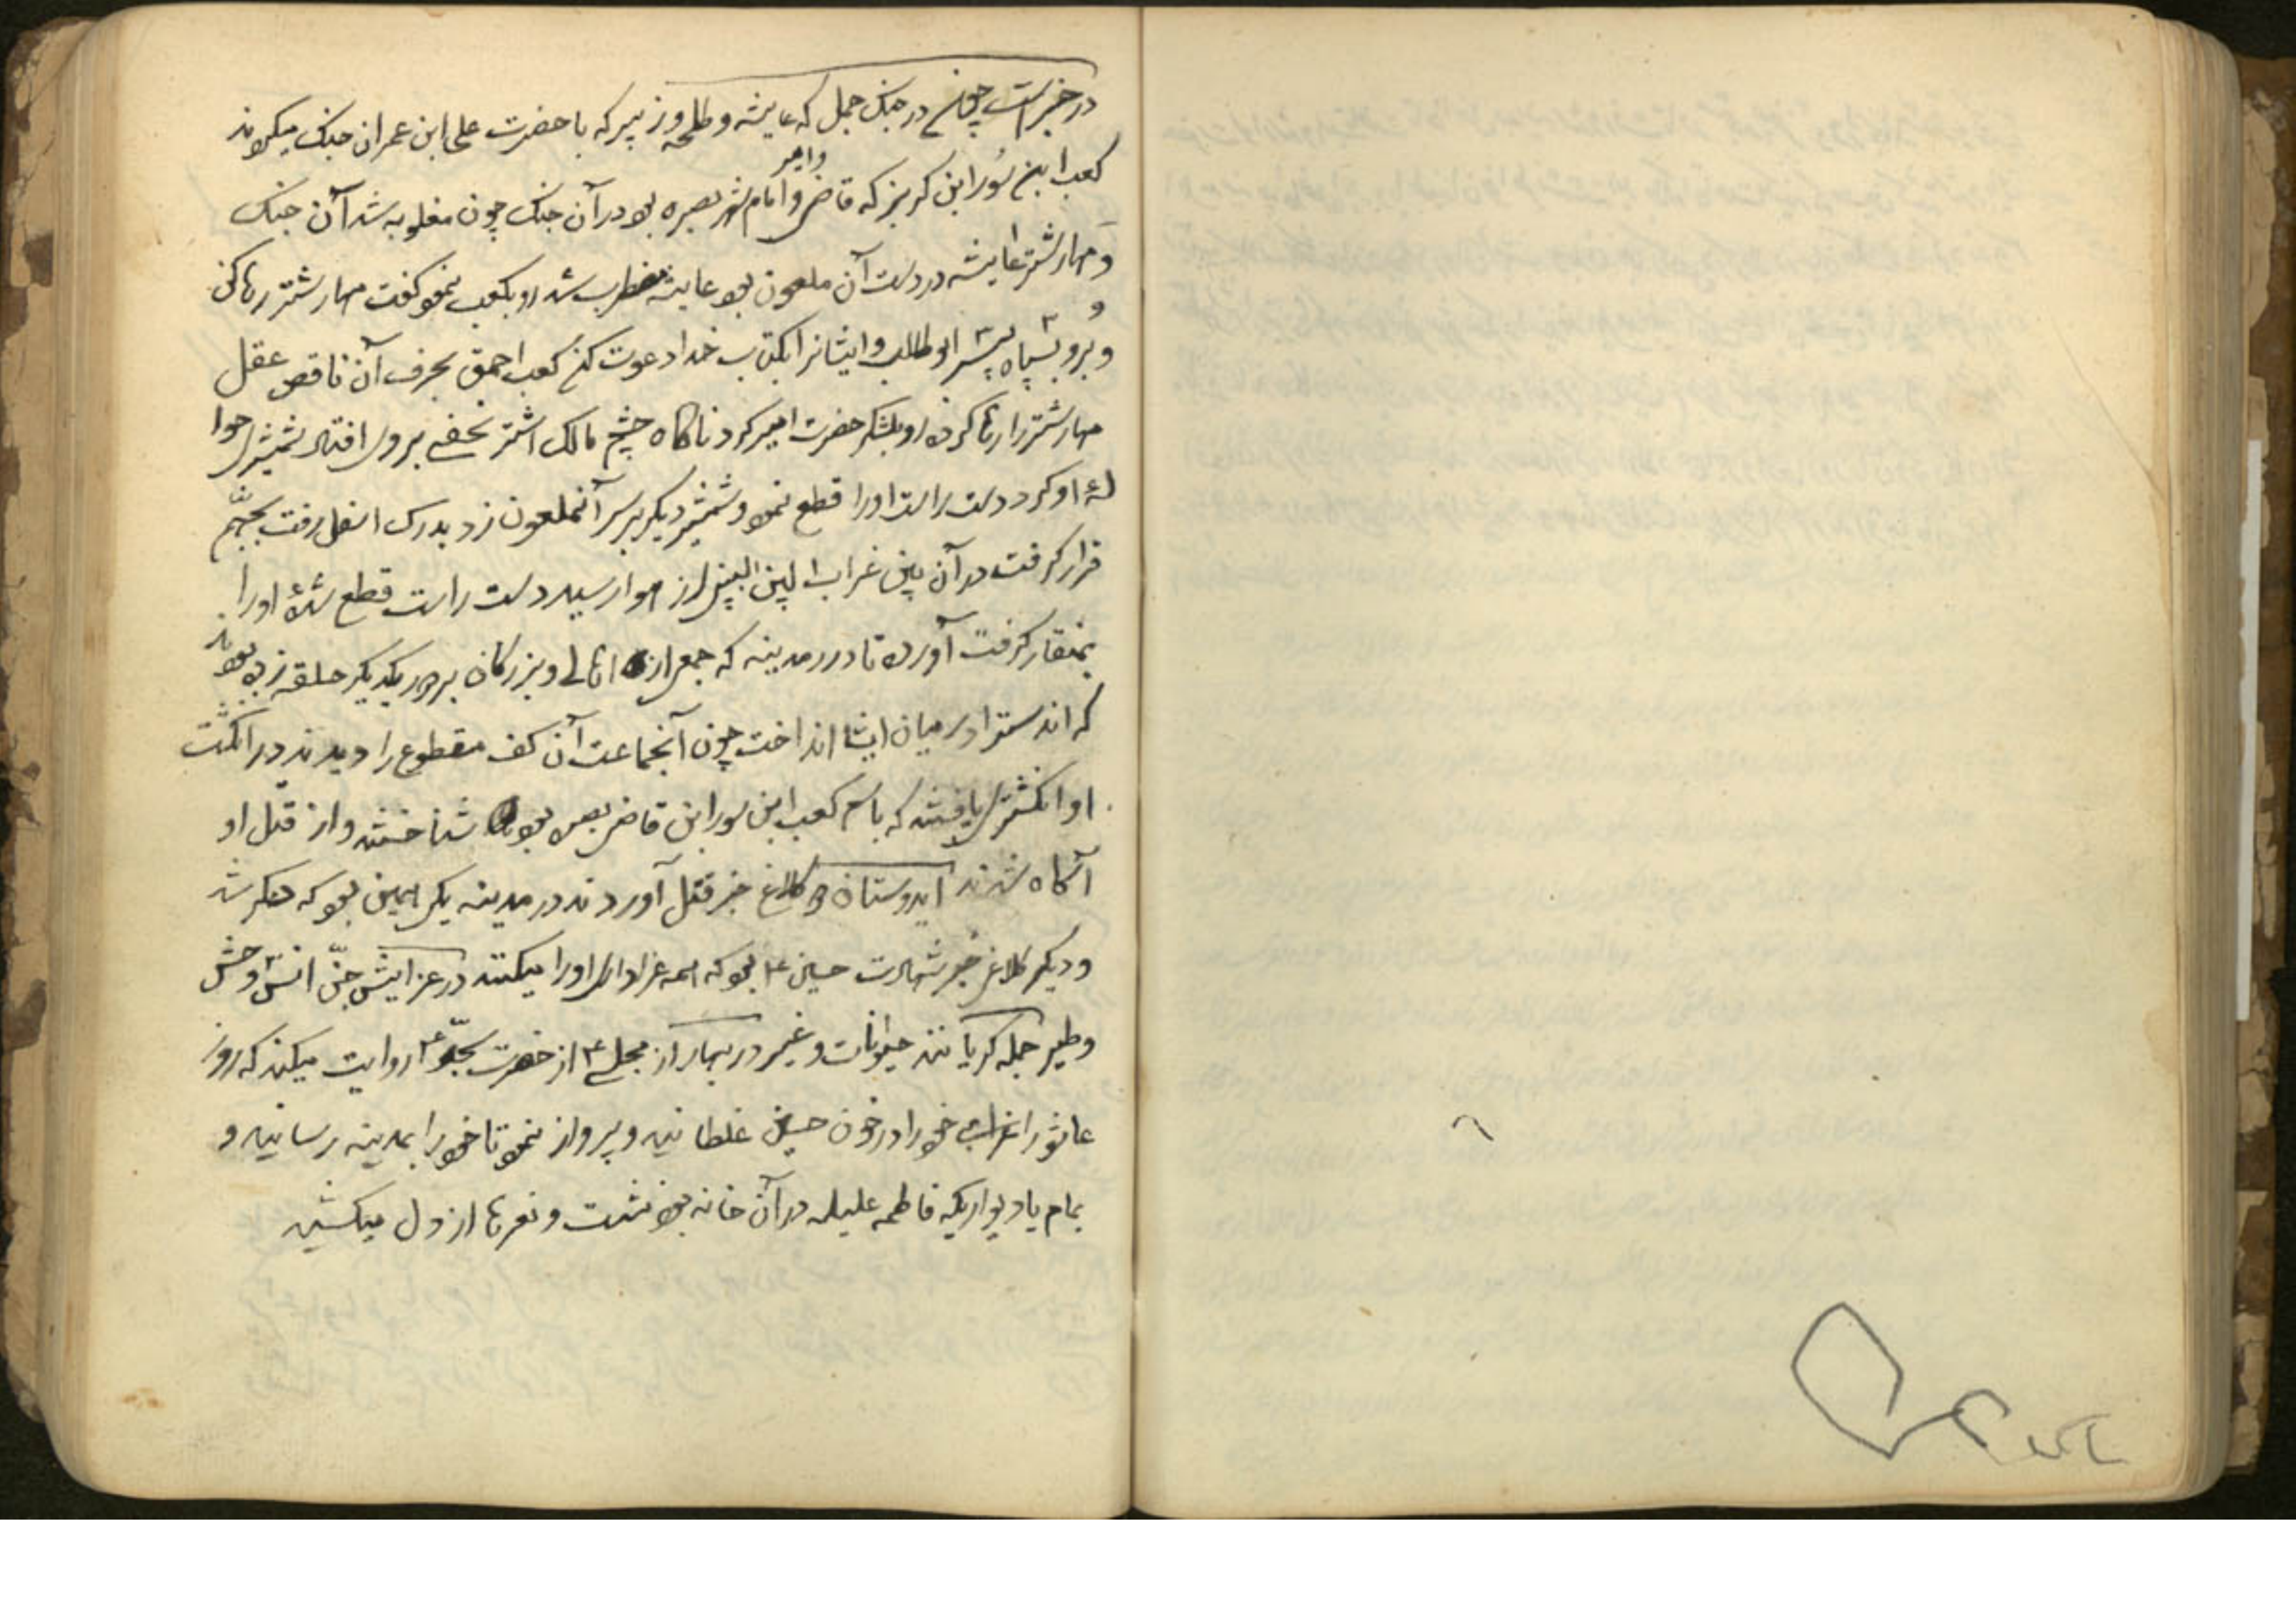 در خبر است چون در جنک جمل که عایشه و طلحه و زبیر که با حضرت علی ابن عمران جنک میکردند
کعب ابن سور ابن کریز که قاضی و امام شهر بصره بود در آن جنک چون مغلوبه شد آن جنک
وامیر
و مهار شتر عایشه در دست آن ملعون بود عایشه مضطرب شد رو بکعب نمود کفت مهار شتر رها کن
و برو بسپاه پسر ابوطالب و ایشانرا بکتاب خدا دعوت کن کعب احمق بحرف آن ناقص عقل
مهار شتر را رها کرده رو بلشکر حضرت امیر کرد ناکاه چشم مالک اشتر نخعی بر وی افتاد شمشیری حوا
لهٔ او کرد دست راست او را قطع نمود و شمشیر دیکر بر سر آنملعون زد بدرک اسفل رفت بجهنم
قرار کرفت در آن بین غراب البین از هوا رسید دست راست قطع شدهٔ او را
بمنقار کرفت آورد تا در مدینه که جمعی از اهالی و بزرکان بر دور یکدیکر حلقه زده بودند
که اندستر در میان ایشا انداخت چون آنجماعت آن کف مقطوع را دیدند در انکشت
او انکشتری یافتند که باسم کعب ابن سور ابن قاضی بصره بود شناختند و از قتل او
آکاه شدند ایدوستان دو کلاغ خبر قتل آوردند در مدینه یکی همین بود که ذکر شد
و دیکر کلاغ خبر شهادت حسین ع بود که همه عزاداری او را میکنند در عزایش جن انس و وحش
و طیر جمله کریانند حیوانات و غیر در بحار از مجلسی ع از حضرت سجاد ع روایت میکند که روز
عاشورا غرابی خود را در خون حسین غلطانید و پرواز نمود تا خود را بمدینه رسانید و
بام یا دیواریکه فاطمه علیله در آن خانه بود نشست و نعرها از دل میکشید